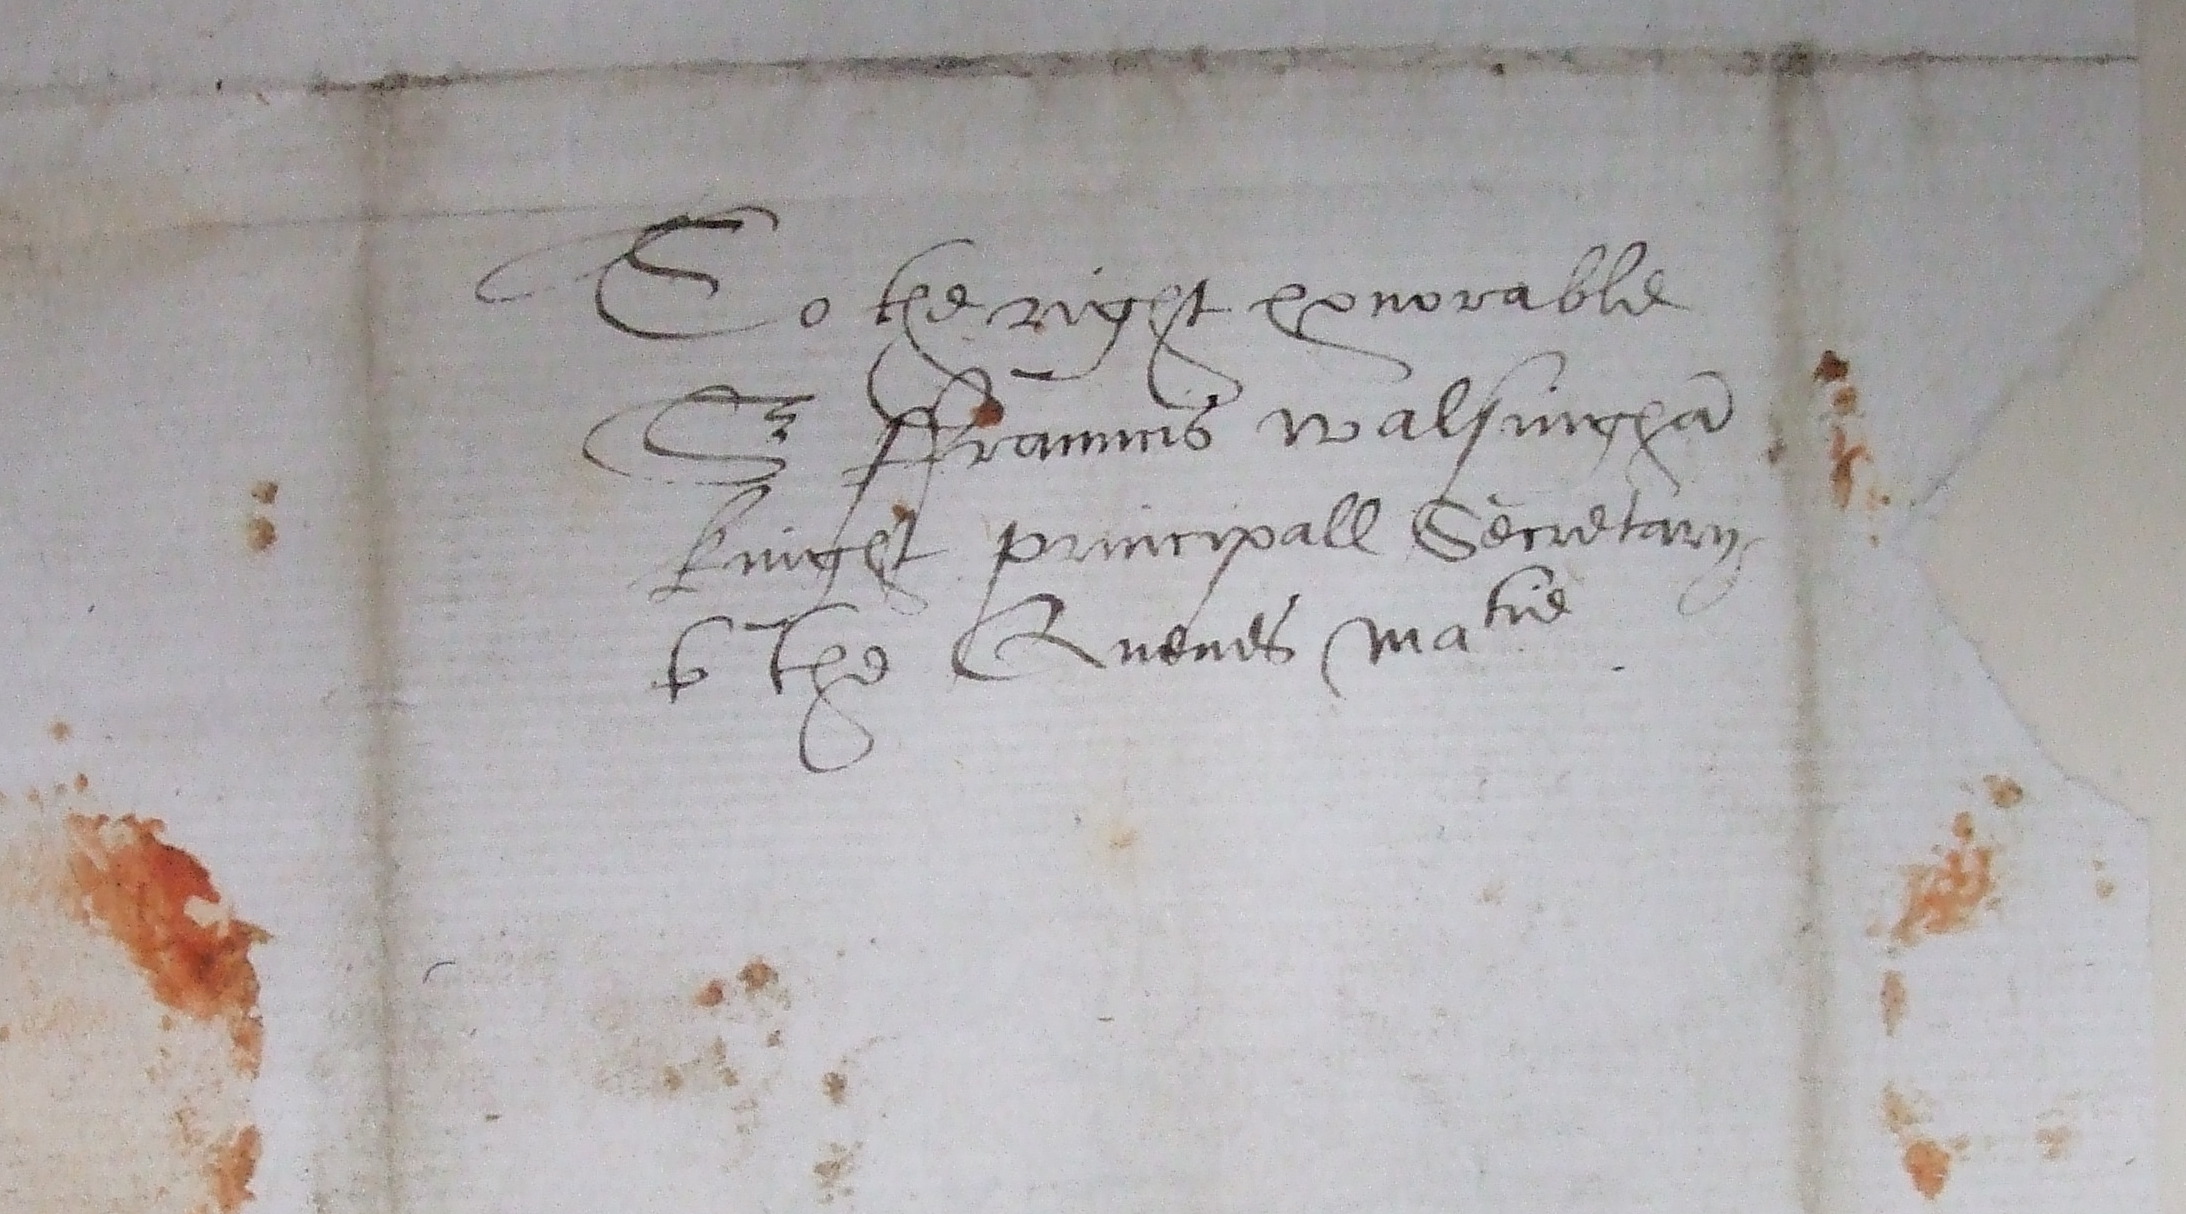 To the right honorable
Sr ffrauncis walsinghā
knight principall Secretary
to the Quenes Matie